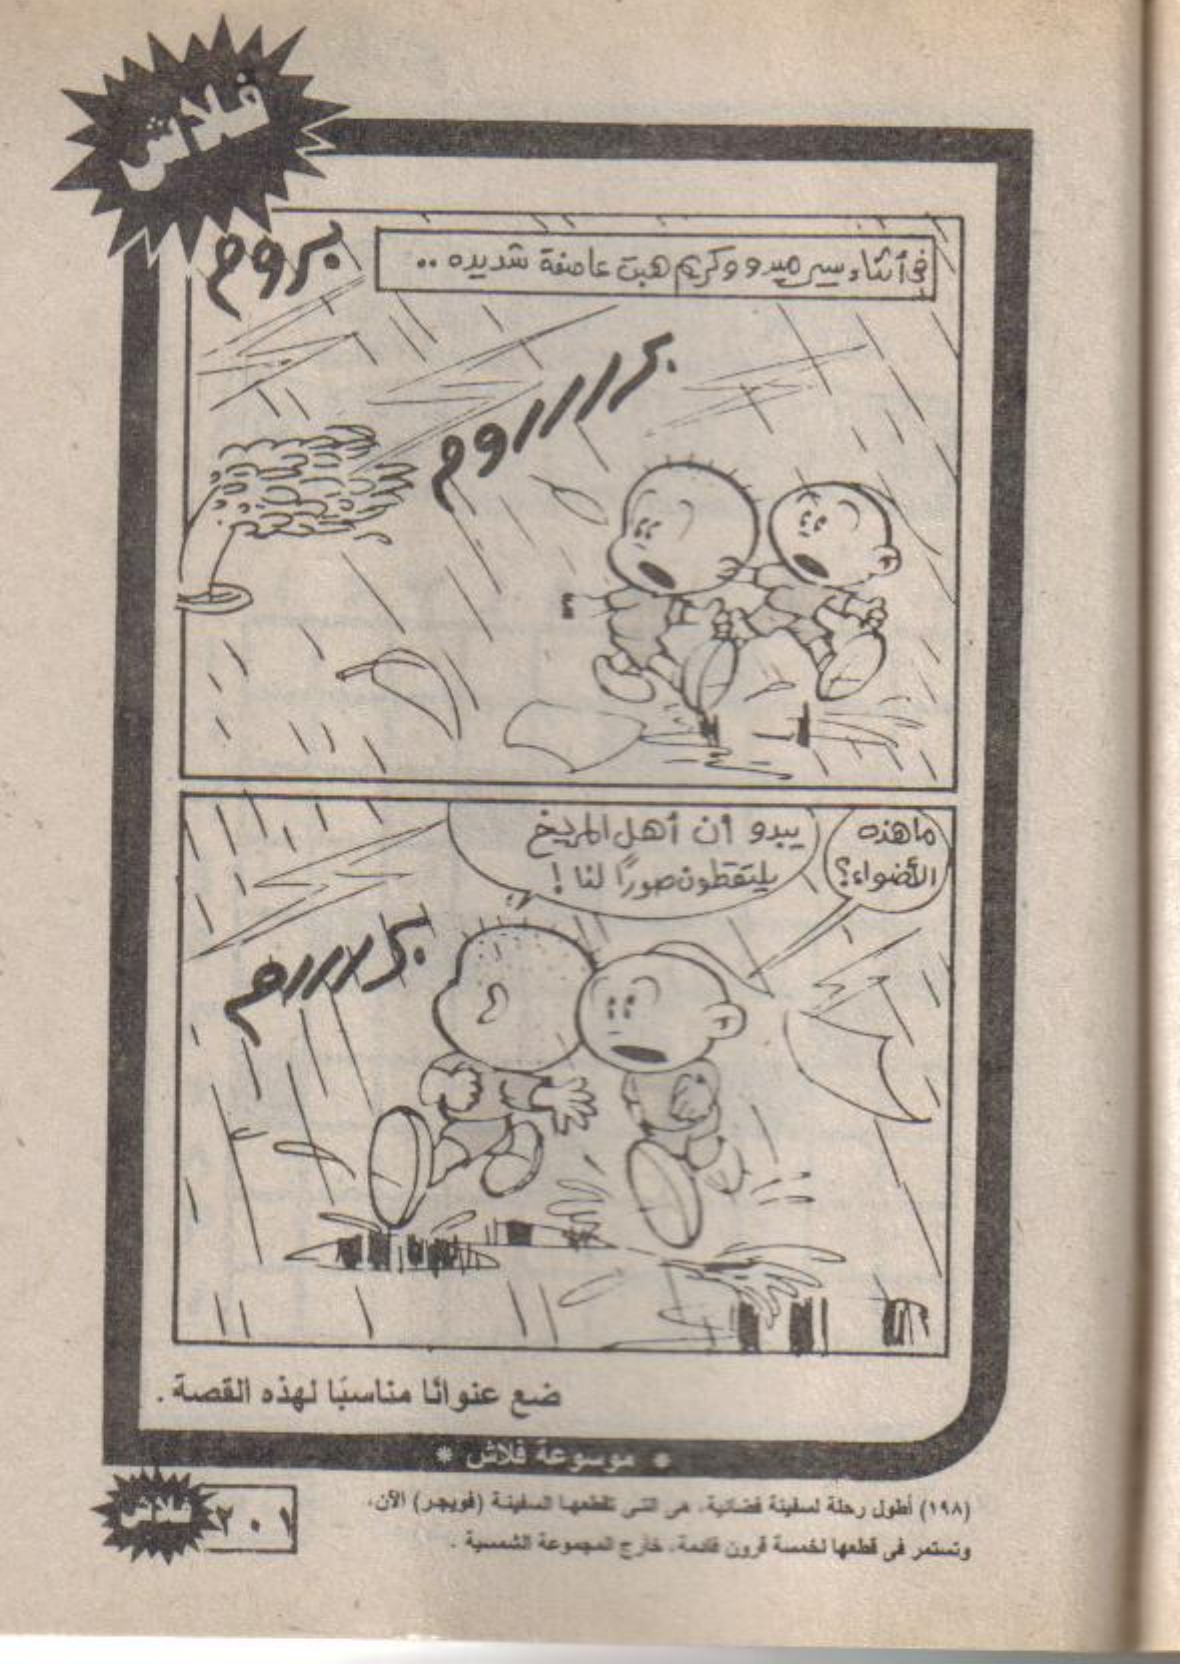 فلاش
فى أثناء سير ميدو وكريم هبت عاصفة شديده ..
بروم
بررررروم
ما هذه
الأضواء؟
يبدو أن أهل المريخ
يلتقطون صورًا لنا !
برررررم
ضع عنوانًا مناسبًا لهذه القصة .
* موسوعة فلاش *
(١٩٨) أطول رحلة لسفينة فضائية، هى التى تقطعها السفينة (فويجر) الآن،
وتستمر فى قطعها لخمسة قرون قادمة، خارج المجموعة الشمسية .
فلاش
٢٠١